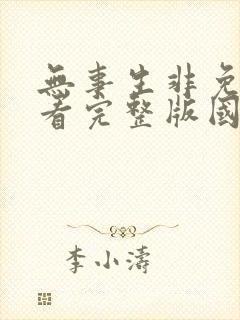 無事生非免
看完整版國
李小濤